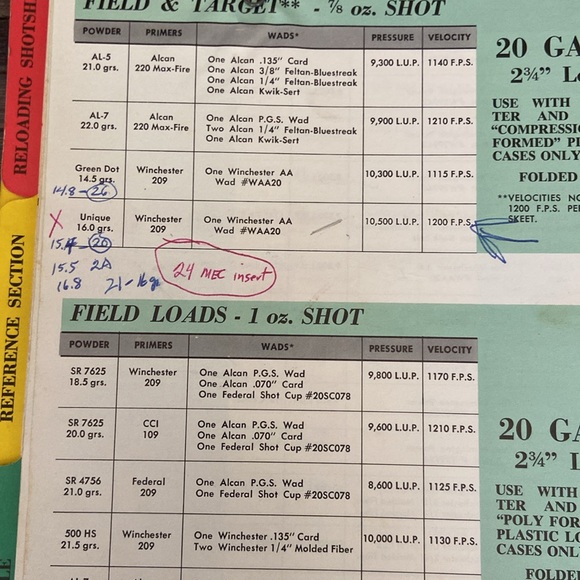 FIELD & TARGET** - 7/8 oz. SHOT
POWDER PRIMERS WADS* PRESSURE VELOCITY
AL-5 Alcan One Alcan .135" Card 9,300 L.U.P. 1140 F.P.S.
21.0 grs. 220 Max-Fire One Alcan 3/8" Feltan-Bluestreak
One Alcan 1/4" Feltan-Bluestreak
One Alcan Kwik-Sert
AL-7 Alcan One Alcan P.G.S. Wad 9,900 L.U.P. 1210 F.P.S.
22.0 grs. 220 Max-Fire Two Alcan 1/4" Feltan-Bluestreak
One Alcan Kwik-Sert
Green Dot Winchester One Winchester AA 10,300 L.U.P. 1115 F.P.S.
14.5 grs. 209 Wad #WAA20
14.8 - 26
X Unique Winchester One Winchester AA 10,500 L.U.P. 1200 F.P.S.
16.0 grs. 209 Wad #WAA20
20
15.5 2A
16.8 21-16gr
24 MEC insert
FIELD LOADS - 1 oz. SHOT
POWDER PRIMERS WADS* PRESSURE VELOCITY
SR 7625 Winchester One Alcan P.G.S. Wad 9,800 L.U.P. 1170 F.P.S.
18.5 grs. 209 One Alcan .070" Card
One Federal Shot Cup #20SC078
SR 7625 CCI One Alcan P.G.S. Wad 9,600 L.U.P. 1210 F.P.S.
20.0 grs. 109 One Alcan .070" Card
One Federal Shot Cup #20SC078
SR 4756 Federal One Alcan P.G.S. Wad 8,600 L.U.P. 1125 F.P.S.
21.0 grs. 209 One Federal Shot Cup #20SC078
500 HS Winchester One Winchester .135" Card 10,000 L.U.P. 1130 F.P.S.
21.5 grs. 209 Two Winchester 1/4" Molded Fiber
20 GA
2¾" L
USE WITH
TER AND
"COMPRESSIO
FORMED" PL
CASES ONLY
FOLDED
**VELOCITIES NO
1200 F.P.S. PE
SKEET.
20 GA
2¾" L
USE WITH
TER AND
"POLY FOR
PLASTIC LO
CASES ONL
FOLDE
RELOADING SHOTSH
REFERENCE SECTION